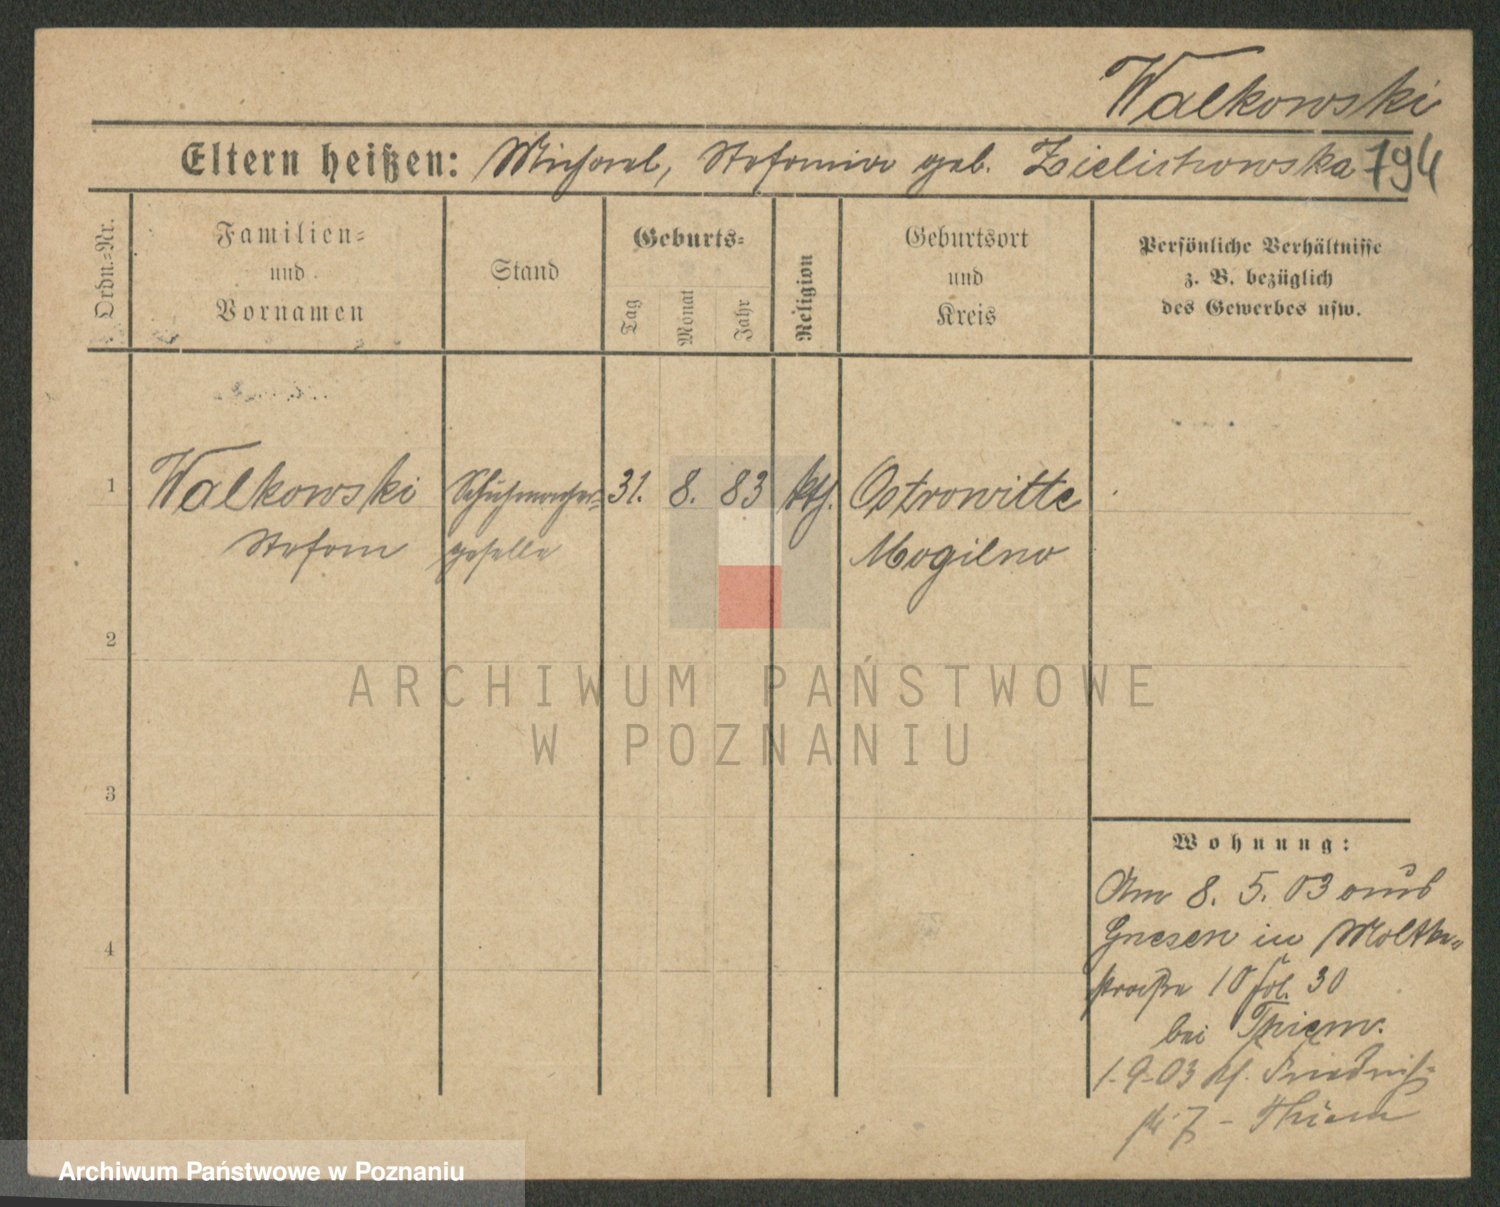 Walkowski
Eltern heißen: Michael, Stefania geb. Zielichowska 794
Ordn.-Nr.
Familien-
und
Vornamen
Stand
Geburts-
Tag
Monat
Jahr
Religion
Geburtsort
und
Kreis
Persönliche Verhältnisse
z. B. bezüglich
des Gewerbes usw.
1 Walkowski Schuhmacher- 31. 8. 83 kth. Ostrowitte
Stefan geselle Mogilno
2
3
4
Wohnung:
Am 8. 5. 03 aus
Gnesen in Moltke-
straße 10 fol. 30
bei Thiem.
1-9-03 Friedrich-
7 - Thiem
ARCHIWUM PAŃSTWOWE
W POZNANIU
Archiwum Państwowe w Poznaniu